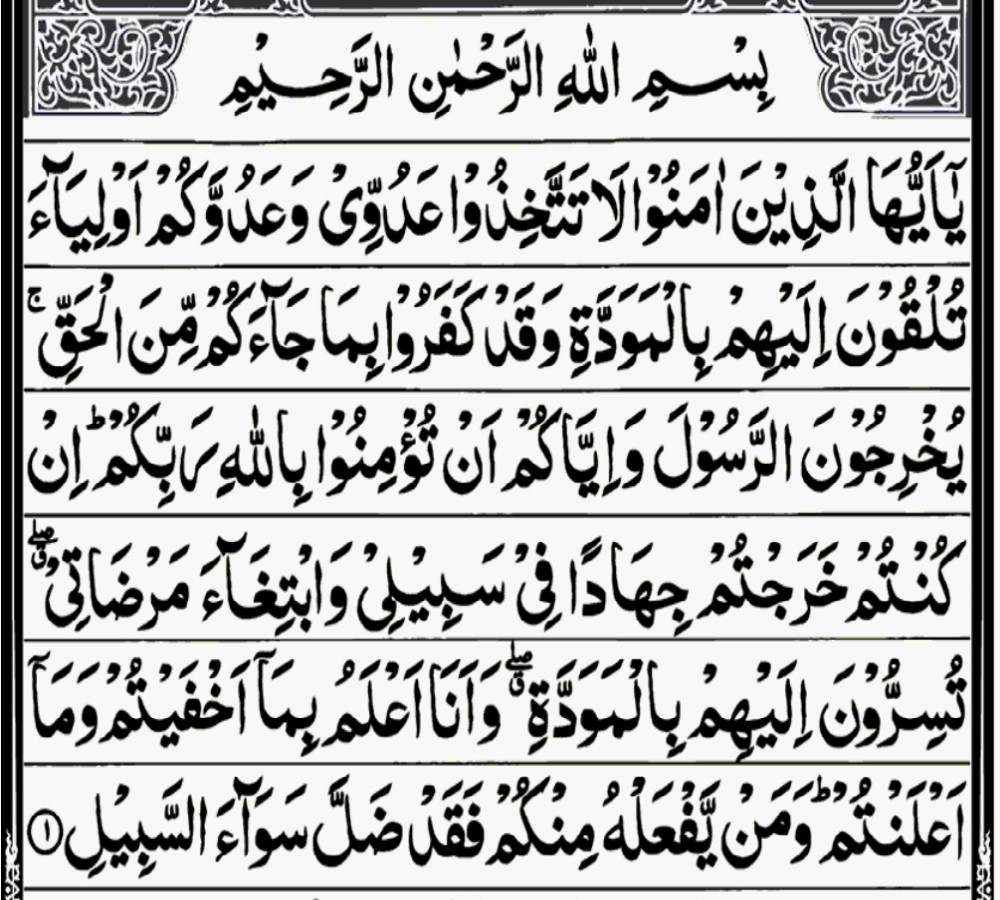 بِسْمِ اللّٰهِ الرَّحْمٰنِ الرَّحِيْمِ
يٰٓاَيُّهَا الَّذِيْنَ اٰمَنُوْا لَا تَتَّخِذُوْا عَدُوِّىْ وَعَدُوَّكُمْ اَوْلِيَآءَ
تُلْقُوْنَ اِلَيْهِمْ بِالْمَوَدَّةِ وَقَدْ كَفَرُوْا بِمَا جَآءَكُمْ مِّنَ الْحَقِّ ۚ
يُخْرِجُوْنَ الرَّسُوْلَ وَاِيَّاكُمْ اَنْ تُؤْمِنُوْا بِاللّٰهِ رَبِّكُمْ ؕ اِنْ
كُنْتُمْ خَرَجْتُمْ جِهَادًا فِىْ سَبِيْلِىْ وَابْتِغَآءَ مَرْضَاتِىْ ۖۗ
تُسِرُّوْنَ اِلَيْهِمْ بِالْمَوَدَّةِ ۖۗ وَاَنَا اَعْلَمُ بِمَآ اَخْفَيْتُمْ وَمَآ
اَعْلَنْتُمْ ؕ وَمَنْ يَّفْعَلْهُ مِنْكُمْ فَقَدْ ضَلَّ سَوَآءَ السَّبِيْلِ ۝۱